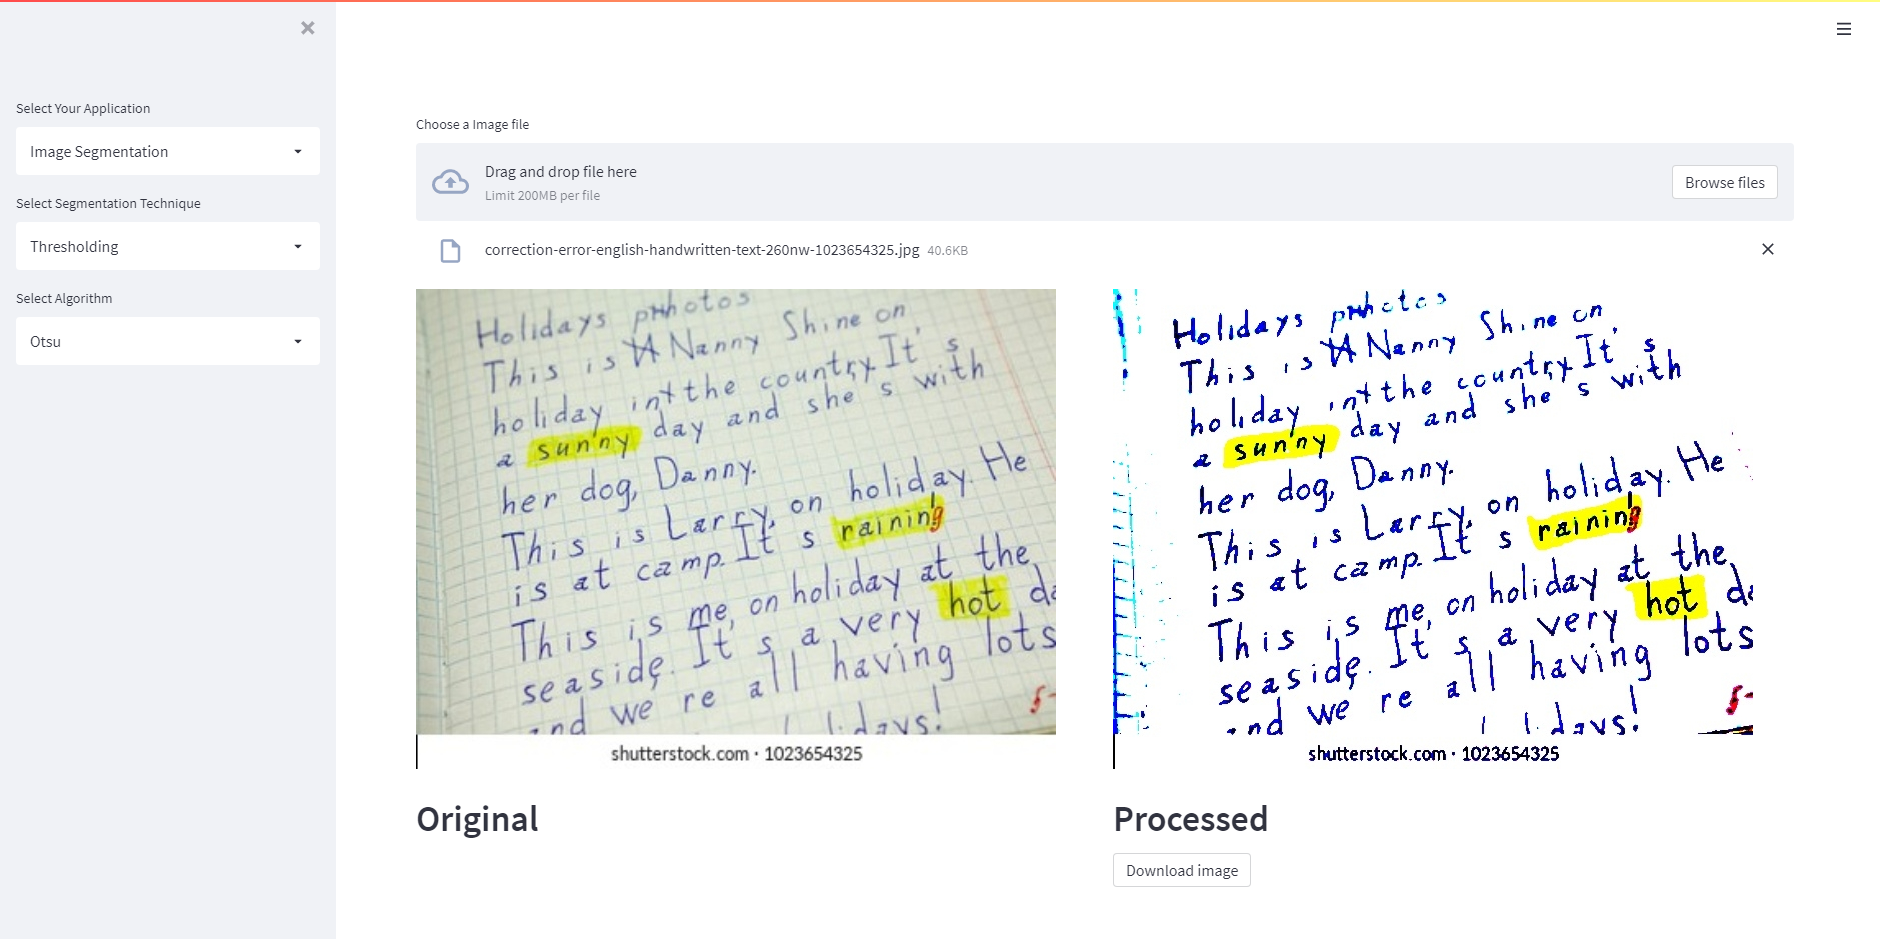 Select Your Application
Image Segmentation
Select Segmentation Technique
Thresholding
Select Algorithm
Otsu
Choose a Image file
Drag and drop file here
Limit 200MB per file
Browse files
correction-error-english-handwritten-text-260nw-1023654325.jpg 40.6KB
Holidays photos
This is Nanny Shine on
holiday in the country It's
a sunny day and she's with
her dog, Danny.
This is Larry, on holiday. He
is at camp. It s raining
This is me, on holiday at the
seaside. It s a very hot
and we re all having lots
shutterstock.com · 1023654325
Original
Holidays photos
This is Nanny Shine on
holiday in the country It's
a sunny day and she's with
her dog, Danny.
This is Larry, on holiday. He
is at camp. It s raining
This is me, on holiday at the
seaside. It s a very hot
and we re all having lots
shutterstock.com · 1023654325
Processed
Download image